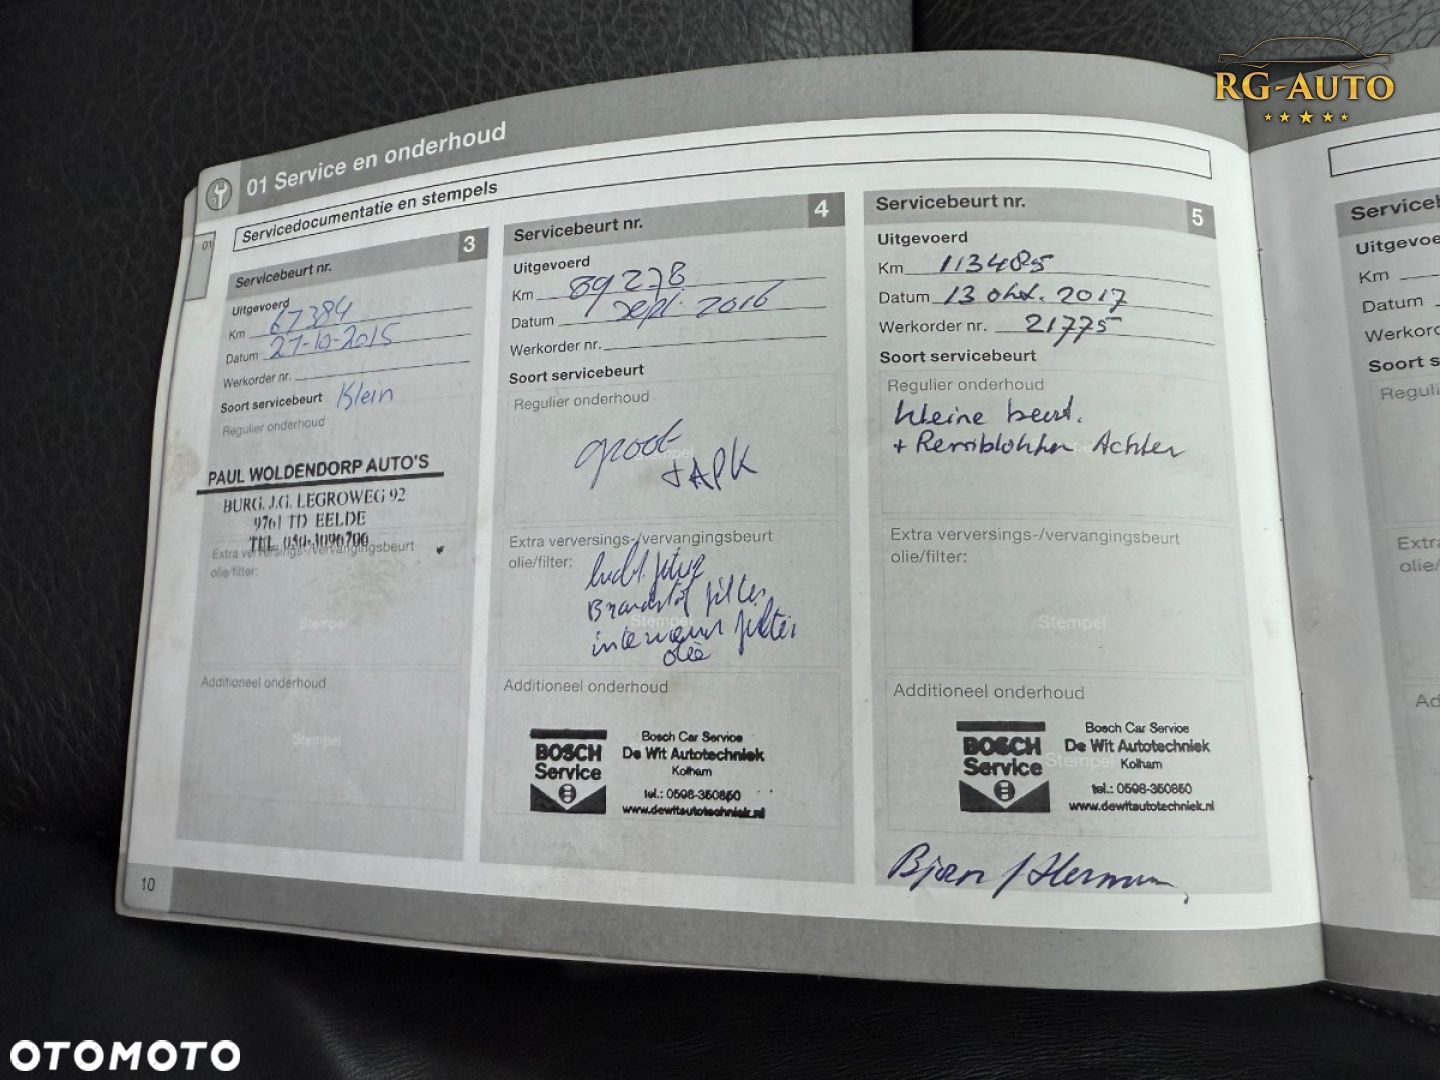 RG-AUTO
01 Service en onderhoud
01
Servicedocumentatie en stempels
Servicebeurt nr. 3
Uitgevoerd
Km 67384
Datum 27-10-2015
Werkorder nr.
Soort servicebeurt Klein
Regulier onderhoud
PAUL WOLDENDORP AUTO'S
BURG. J.G. LEGROWEG 92
9761 TD EELDE
TEL. 050-3096706
Extra verversings-/vervangingsbeurt
olie/filter:
Stempel
Additioneel onderhoud
Stempel
10
Servicebeurt nr. 4
Uitgevoerd
Km 89278
Datum sept. 2016
Werkorder nr.
Soort servicebeurt
Regulier onderhoud
groot
+ APK
Extra verversings-/vervangingsbeurt
olie/filter: lucht filter
Brandstof filter
interieur filter
olie
Additioneel onderhoud
BOSCH
Service
Bosch Car Service
De Wit Autotechniek
Kolham
tel.: 0598-350850
www.dewitautotechniek.nl
Servicebeurt nr. 5
Uitgevoerd
Km 113485
Datum 13 okt. 2017
Werkorder nr. 21775
Soort servicebeurt
Regulier onderhoud
kleine beurt.
+ Remblokken Achter
Extra verversings-/vervangingsbeurt
olie/filter:
Stempel
Additioneel onderhoud
BOSCH
Service
Bosch Car Service
De Wit Autotechniek
Stempel
Kolham
tel.: 0598-350850
www.dewitautotechniek.nl
Bjorn
Uitgevoe
Km
Datum
Soort s
Extra
olie/
Ad
OTOMOTO